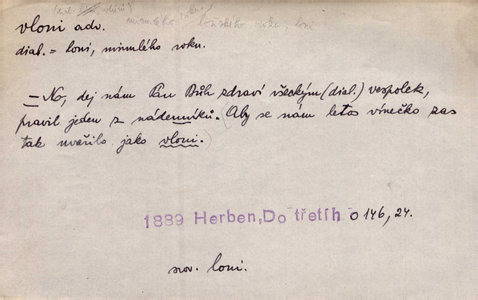 vloni adv.
dial. = loni, minulého roku.
— No, dej nám Pán Bůh zdraví všeckým (dial.) vespolek,
pravil jeden z nádenníků. (Aby se nám letos vínečko zas
tak uvařilo jako vloni.
1889 Herben, Do třetího 146, 24.
srov. loni.